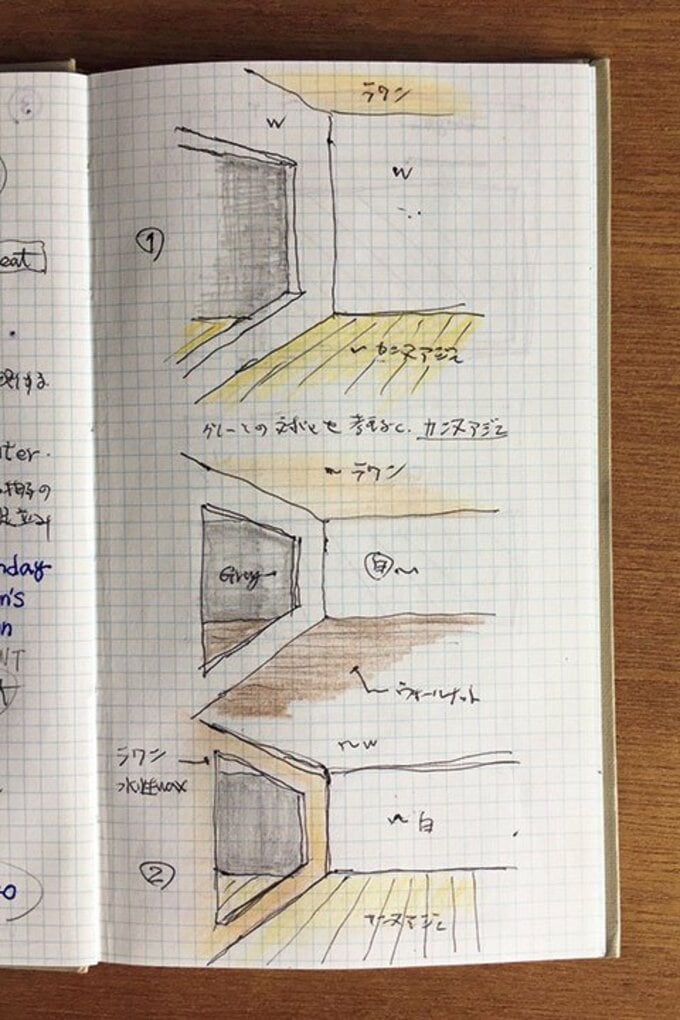 eat
する
ter.
の
nday
n's
n
NT
ラワン
W
W
①
カンヌアジエ
グレーとの対比を考えると、カンヌアジエ
ラワン
Grey
白
ウォールナット
W
ラワン
水性wax
白
②
カンヌアジエ